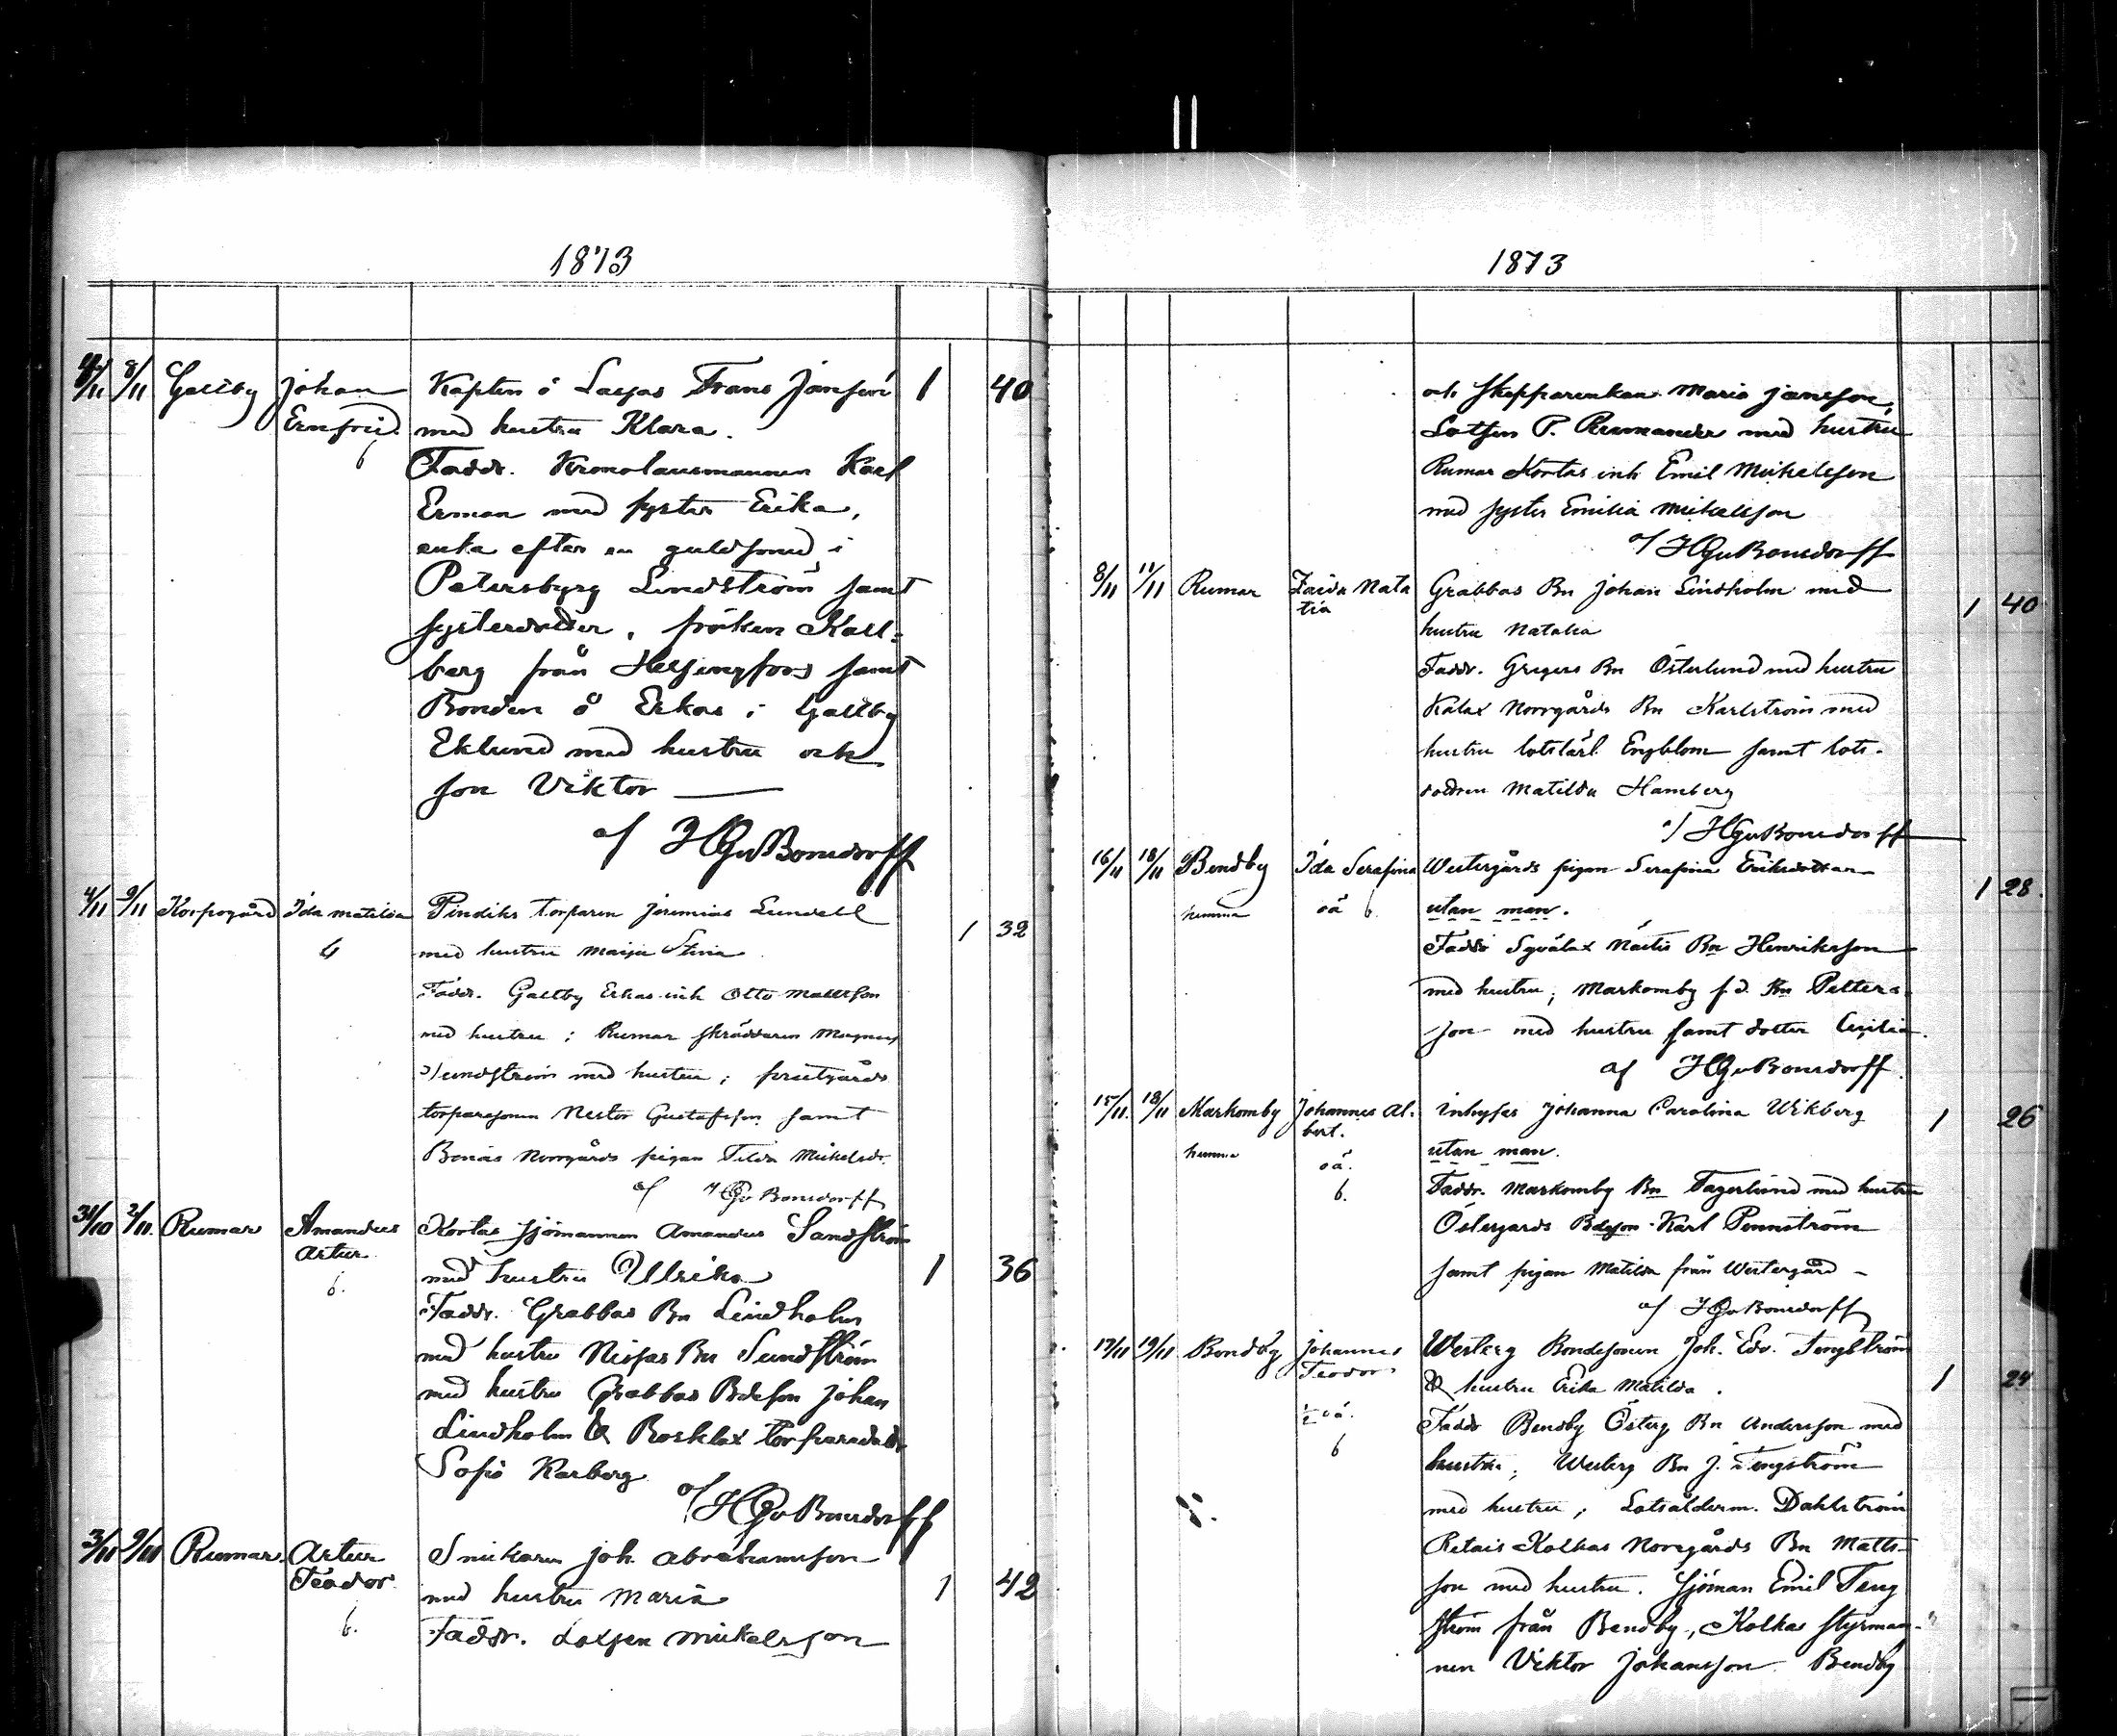 1873
4/11 8/11 Galtby Johan Kapten å Lasjas Frans Jansson 1 40
Ernfrid. med hustru Klara.
b Faddr. Kronolänsmannen Karl
Erman med syster Erika,
enka efter en guldsmed i
Petersbyrg Lindström samt
systerdotter, fröken Karl-
berg från Helsingfors samt
Bonden å Erkas i Galtby
Eklund med hustru och
son Viktor —
af HGvBonsdorff
4/11 9/11 Korpogård Ida Matilda Pindiks torparen Jeremias Lundell 1 32
b med hustru Maija Stina
Faddr. Galtby Erkas inh Otto Mattsson
med hustru; Rumar skräddaren Magnus
Sundström med hustru; prestgårds
torparesonen Nestor Gustafsson samt
Bonäs Norrgårds pigan Tilda Mickelsdr.
af HGvBonsdorff
31/10 2/11. Rumar Amandus Kortas sjömannen Amandus Sandström
Artur med hustru Ulrika 1 36
b. Faddr. Grabbas Bn Lindholm
med hustru Nisjas Bn Sundström
med hustru Grabbas Bdeson Johan
Lindholm & Rosklax torparedottr
Sofia Karberg
af HGvBonsdorff
3/11 9/11 Rumar. Artur Snickaren Joh. Abrahamsson
Teodor med hustru Maria 1 42
b. Faddr. Lotsen Mickelsson
1873
och skepparenkan Maria Jansson,
Lotsen P. Rumander med hustru
Rumar Kortas inh Emil Mickelsson
med syster Emilia Mickelsson
af HGvBonsdorff
8/11 11/11 Rumar Zaida Nata Grabbas Bn Johan Lindholm med 1 40
lia hustru Natalia
Faddr. Gregers Bn Österlund med hustru
Kälax Norrgårds Bn Karlström med
hustru lotslärl. Engblom samt lots-
dottren Matilda Hamberg
af HGvBonsdorff
16/11 18/11 Bendby Ida Serafina Westergårds pigan Serafina Eriksdotter 1 28.
hemma oä b. utan man.
Faddr Syvälax Bn Henriksson
med hustru; Markomby f.d. Bn Petters-
son med hustru samt dotter Cecilia.
af HGvBonsdorff.
15/11. 18/11 Markomby Johannes Al- inhyses Johanna Carolina Wikberg 1 26
bert.
hemma oä. utan man.
b. Faddr. Markomby Bn Fagerlund med hustru
Östergards Bdeson Karl Pennström
samt pigan Matilda från Westergård –
af HGvBonsdorff
17/11 19/11 Bendby Johannes Westerg Bondesonen Joh. Edv. Tengström
Teodor & hustru Erika Matilda. 1 24
½ oä. Faddr Bendby Österg Bn Andersson med
b hustru; Westerg Bn J. Tengström
med hustru; Lotsålderm. Dahlström
Retais Kolkas Norrgårds Bn Matts-
son med hustru. Sjöman Emil Teng
ström från Bendby, Kolkas styrman-
nen Viktor Johansson Bendby